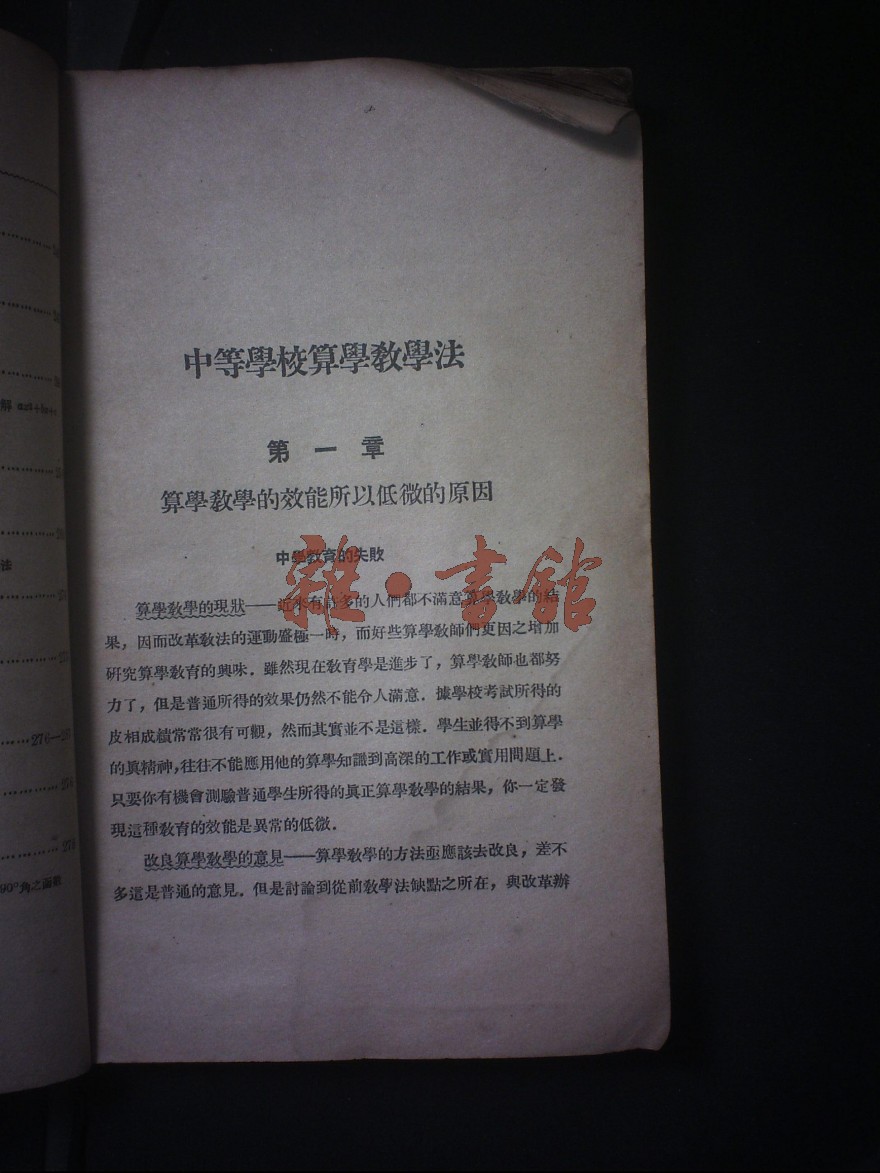 中等學校算學敎學法
第一章
算學敎學的效能所以低微的原因
中學敎育的失敗
算學敎學的現狀——近來有許多的人們都不滿意算學敎學的結
果，因而改革敎法的運動盛極一時，而好些算學敎師們更因之增加
硏究算學敎育的興味．雖然現在敎育學是進步了，算學敎師也都努
力了，但是普通所得的效果仍然不能令人滿意．據學校考試所得的
皮相成績常常很有可觀，然而其實並不是這樣．學生並得不到算學
的眞精神，往往不能應用他的算學知識到高深的工作或實用問題上．
只要你有機會測驗普通學生所得的眞正算學敎學的結果，你一定發
現這種敎育的效能是異常的低微．
改良算學敎學的意見——算學敎學的方法亟應該去改良，差不
多這是普通的意見．但是討論到從前敎學法缺點之所在，與改革辦
雜·書館
解
法
276—
90°角之面